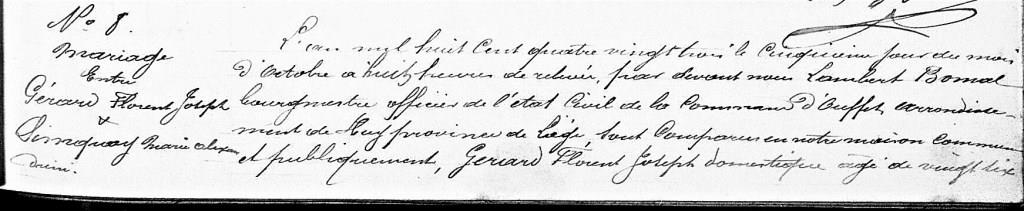 No 8.
Mariage
Entre
Gérard Florent Joseph
&
Simoquoy Marie alexan
drin.
L'an mil huit Cent quatre vingt trois le Cinquieme jour du mois
d'Octobre a huit heures de relevée, par devant nous Lambert Bomal
bourgmestre officier de l'état Civil de la Commune d'Ouffet, arrondisse-
ment de Huy province de Liége, sont Comparus en notre maison Commune
et publiquement, Gerard Florent Joseph domestique agé de vingt six